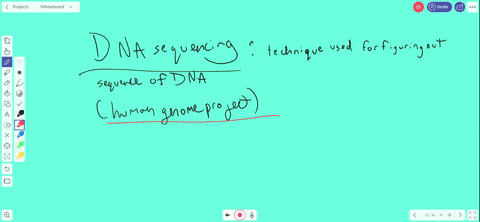 Projects Whiteboard Invite
DNA sequencing : technique used for figuring out
sequence of DNA
(human genome project)